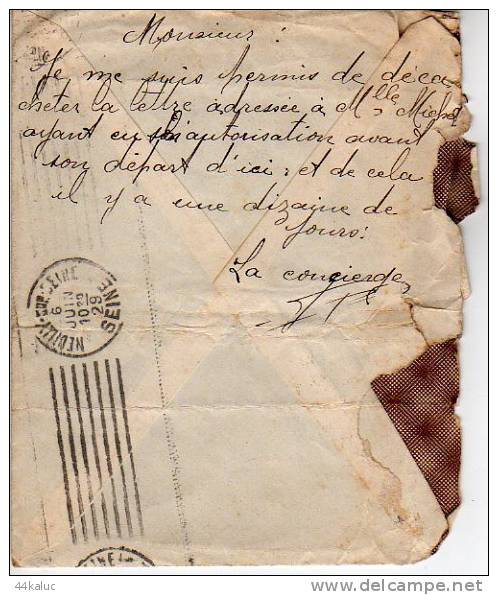 Monsieur :
Je me suis permis de déca
cheter la lettre adressée à Mlle
ayant eu son autorisation avant
son départ d'ici ; et de cela
il y a une dizaine de
jours :
La concierge
NEUILLY-SUR-SEINE
6
JUIN
10
29
SEINE
44kaluc
delcampe.net